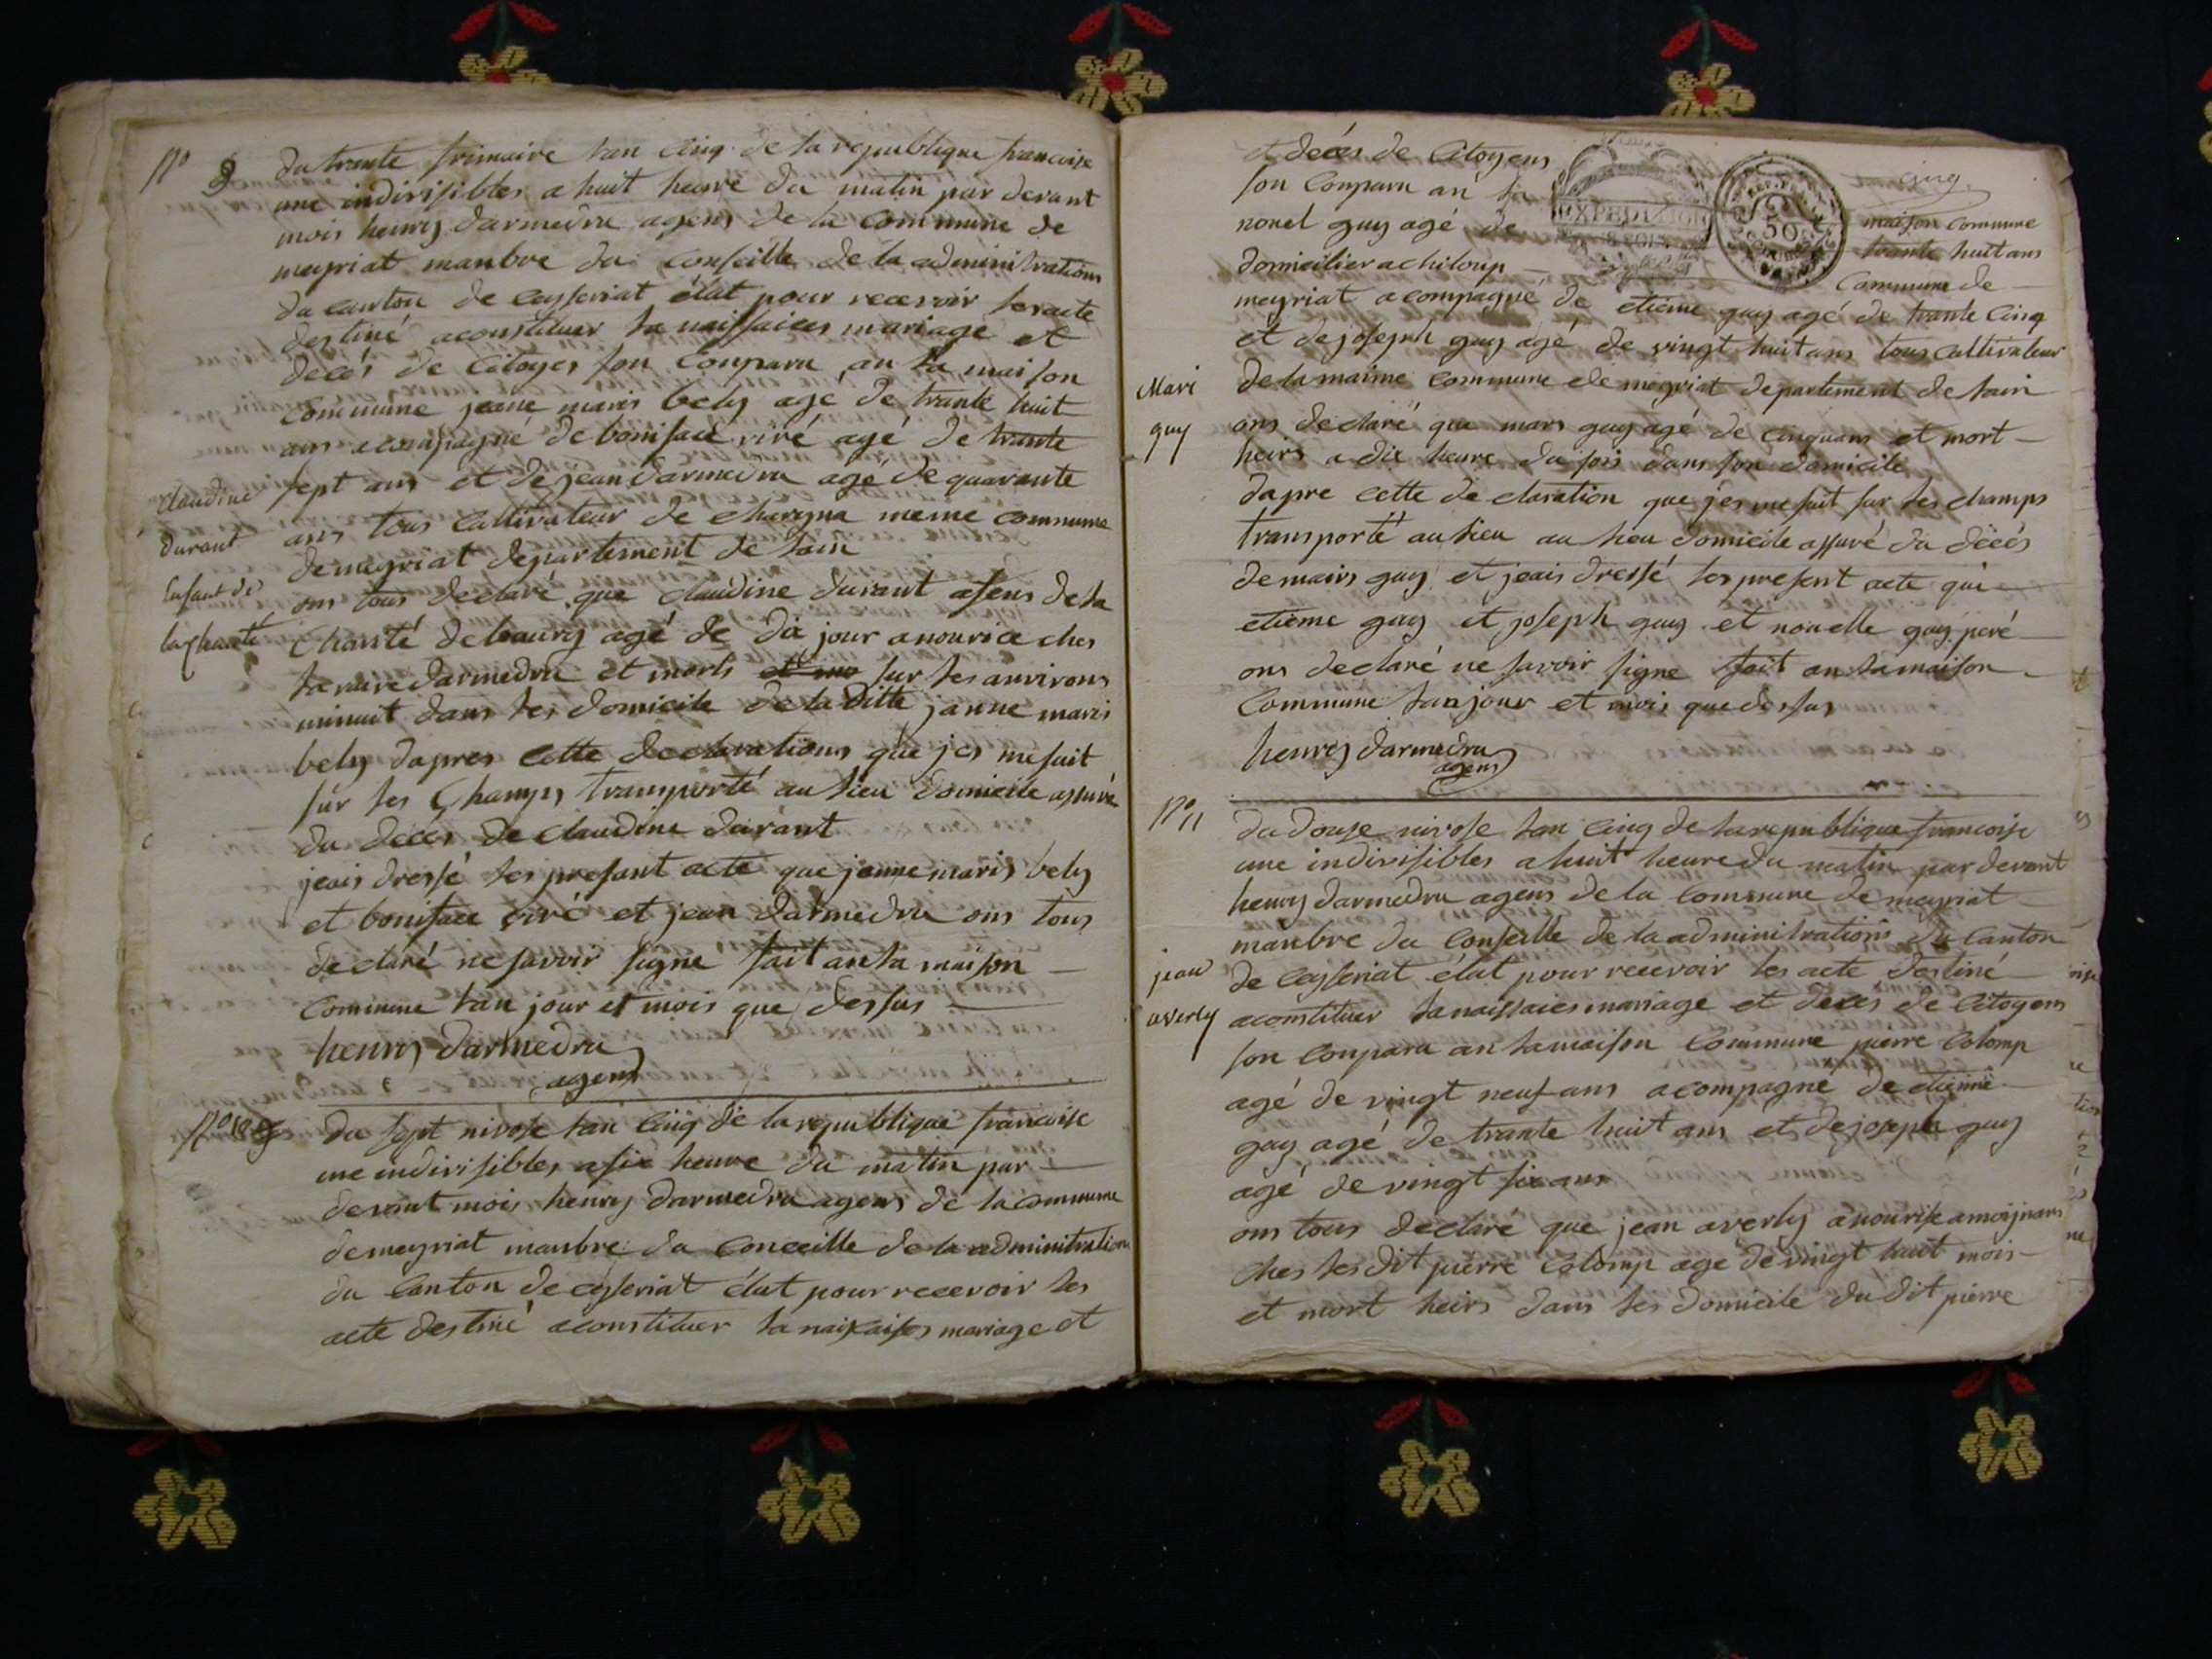 No 9
du trante frimaire lan cinq de la republique francoise
une indivisibles a huit heure du matin par devant
mois henrij darmedru agens de la commune de
meyriat manbre du conseille de la administrations
du canton de ceyseriat élut pour recevoir les acte
destiné aconstituer la naissaices mariage et
decés de citoyes son conparu an la maison
commune jeane maris bely age de trante huit
ans acompagné de boniface viré agé de trante
sept ans et de jean darmedru agé de quarante
ans tous cultivateur de chareyna meme commune
de meyriat departement de lain
claudine
durant
enfant de
la charité
ons tous declaré que claudine durant afens de la
charité de bourg agé de dix jour a nourice ches
la mire darmedru et morts et mo sur les anvirons
minuit dans les domicile de la ditte janne maris
bely dapres cette declarations que jes me suit
sur les champs transporté au lieu domicile assuré
du decés de claudine durant
jeais dressé les presant acte que janne maris bely
et boniface viré et jean darmedru ons tous
declaré ne savoir signé fait an la maison
commune lan jour et mois que dessus
henrij darmedru
agens
No 10
du sept nivose lan cinq de la republique francoise
une indivisibles a six heure du matin par
devant mois henrij darmedru agens de la commune
de meyriat manbre du conceille de la adminitration
du canton de ceyseriat élut pour recevoir les
acte destiné aconstituer la naissaises mariage et
cinq
et decés de citoyens
son conparu an la maison commune
nouel guy agé de trante huit ans
domicilier a chiloup commune de
meyriat acompagné de etiéne guy agé de trante cinq
et de joseph guy agé de vingt huit ans tous cultivateur
de la maime commune de meyriat departement de lain
Mari
guy
ons declaré que maris guy agé de cinquans et mort
heirs a dix heure du soir dans son domicile
dapre cette declaration que jes me suit sur les champs
transporté au lieu au lieu domicile assuré du décés
de maris guy et jeais dressé les present acte que
etiéme guy et joseph guy et nouelle guy peré
ons declaré ne savoir signe fait an la maison
commune lan jour et mois que dessus
henrij darmedru
agens
No 11
du douse nivose lan cinq de la republique francoise
une indivisibles a huit heure du matin par devant
henrij darmedru agens de la commune de meyriat
manbre du conseille de la adminitrations du canton
de ceyseriat élut pour recevoir les acte destiné
jean
averly
aconstituer la naissaices mariage et deces de citoyens
son conparu an la maison commune pierre colomp
agé de vingt neuf ans acompagne de etiénne
guy agé de trante huit ans et de joseph guy
agé de vingt six ans
ons tous declaré que jean averly a nourise
ches les dit pierre colomp age de vingt huit mois
et mort heirs dans les domicile du dit pierre